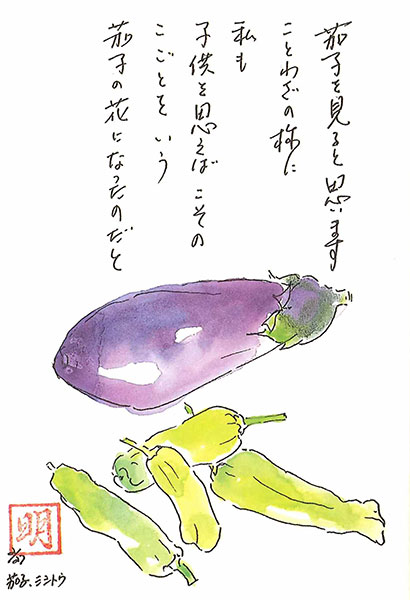 茄子を見ると思います
ことわざの様に
私も
子供を思えばこその
こごとをいう
茄子の花になったのだと
明
茄子、シシトウ